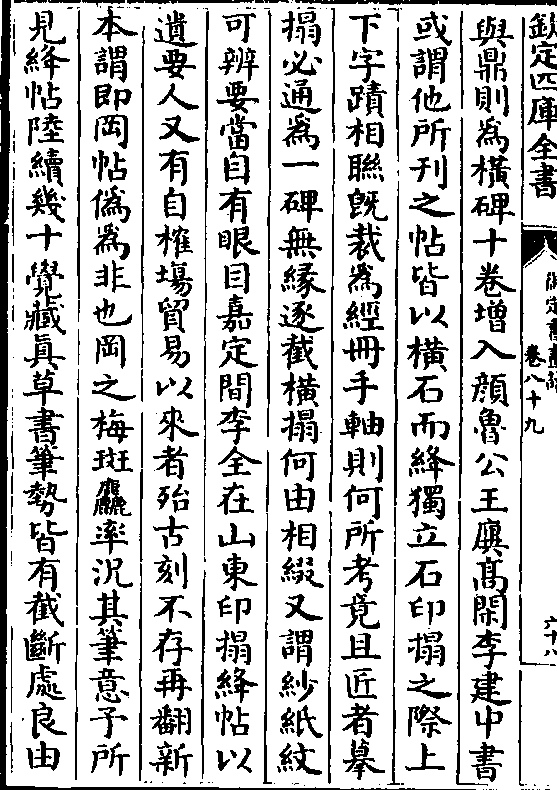 欽定四庫全書
卷八十九
六十八
與鼎則為橫碑十卷增入顔魯公王廙髙閑李建中書
或謂他所刊之帖皆以橫石而絳獨立石印搨之際上
下字蹟相聯旣裁為經冊手軸則何所考竟且匠者摹
搨必通為一碑無縁逐截橫搨何由相綴又謂紗紙紋
可辨要當自有眼目嘉定間李全在山東印搨絳帖以
遺要人又有自榷塲貿易以來者殆古刻不存再翻新
本謂即岡帖僞為非也岡之梅斑麤率況其筆意予所
見絳帖陸續幾十覺藏眞草書筆勢皆有截斷處良由